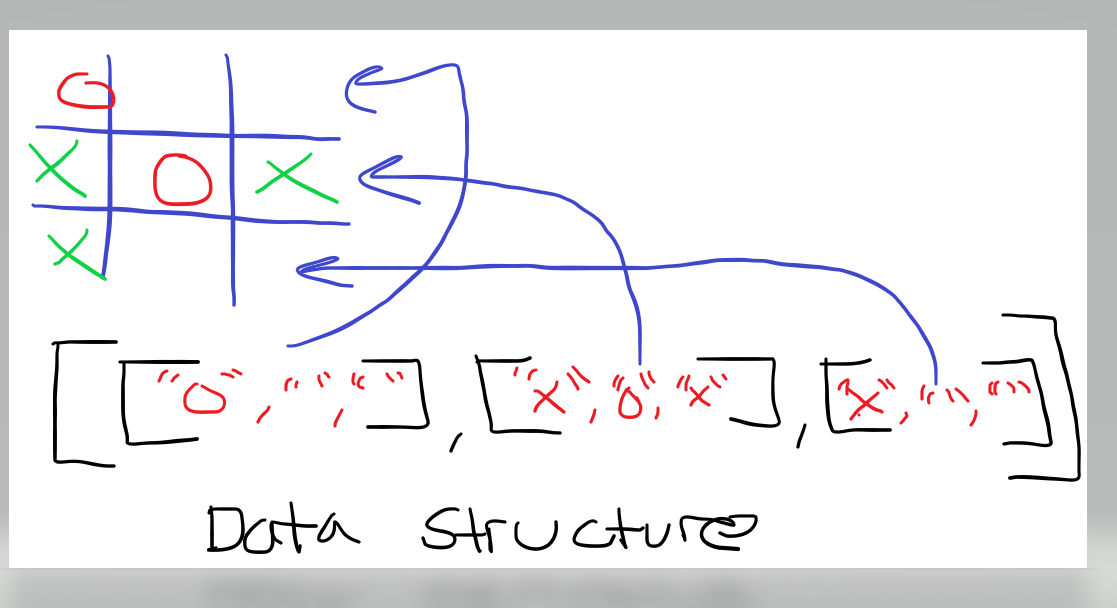 O
X O X
X
[["O", "", ""], ["X", "O", "X"], ["X", "", ""]]
Data Structure